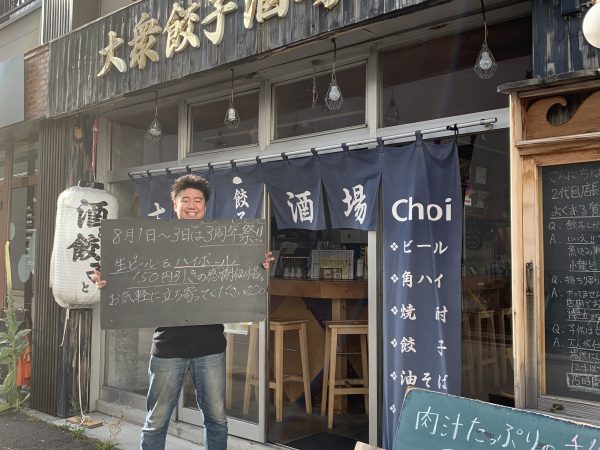 大衆餃子酒場
大 餃子 酒場
Choi
ビール
角ハイ
焼酎
餃子
油そば
酒と餃子
8月1日〜3日は3周年祭!!
生ビール & ハイボール
150円引きの感謝価格。
お気軽に立ち寄ってください
こんにちは
2代目店長
よくある質
Q.
A.
Q.
A.
Q.
A.
肉汁たっぷりの